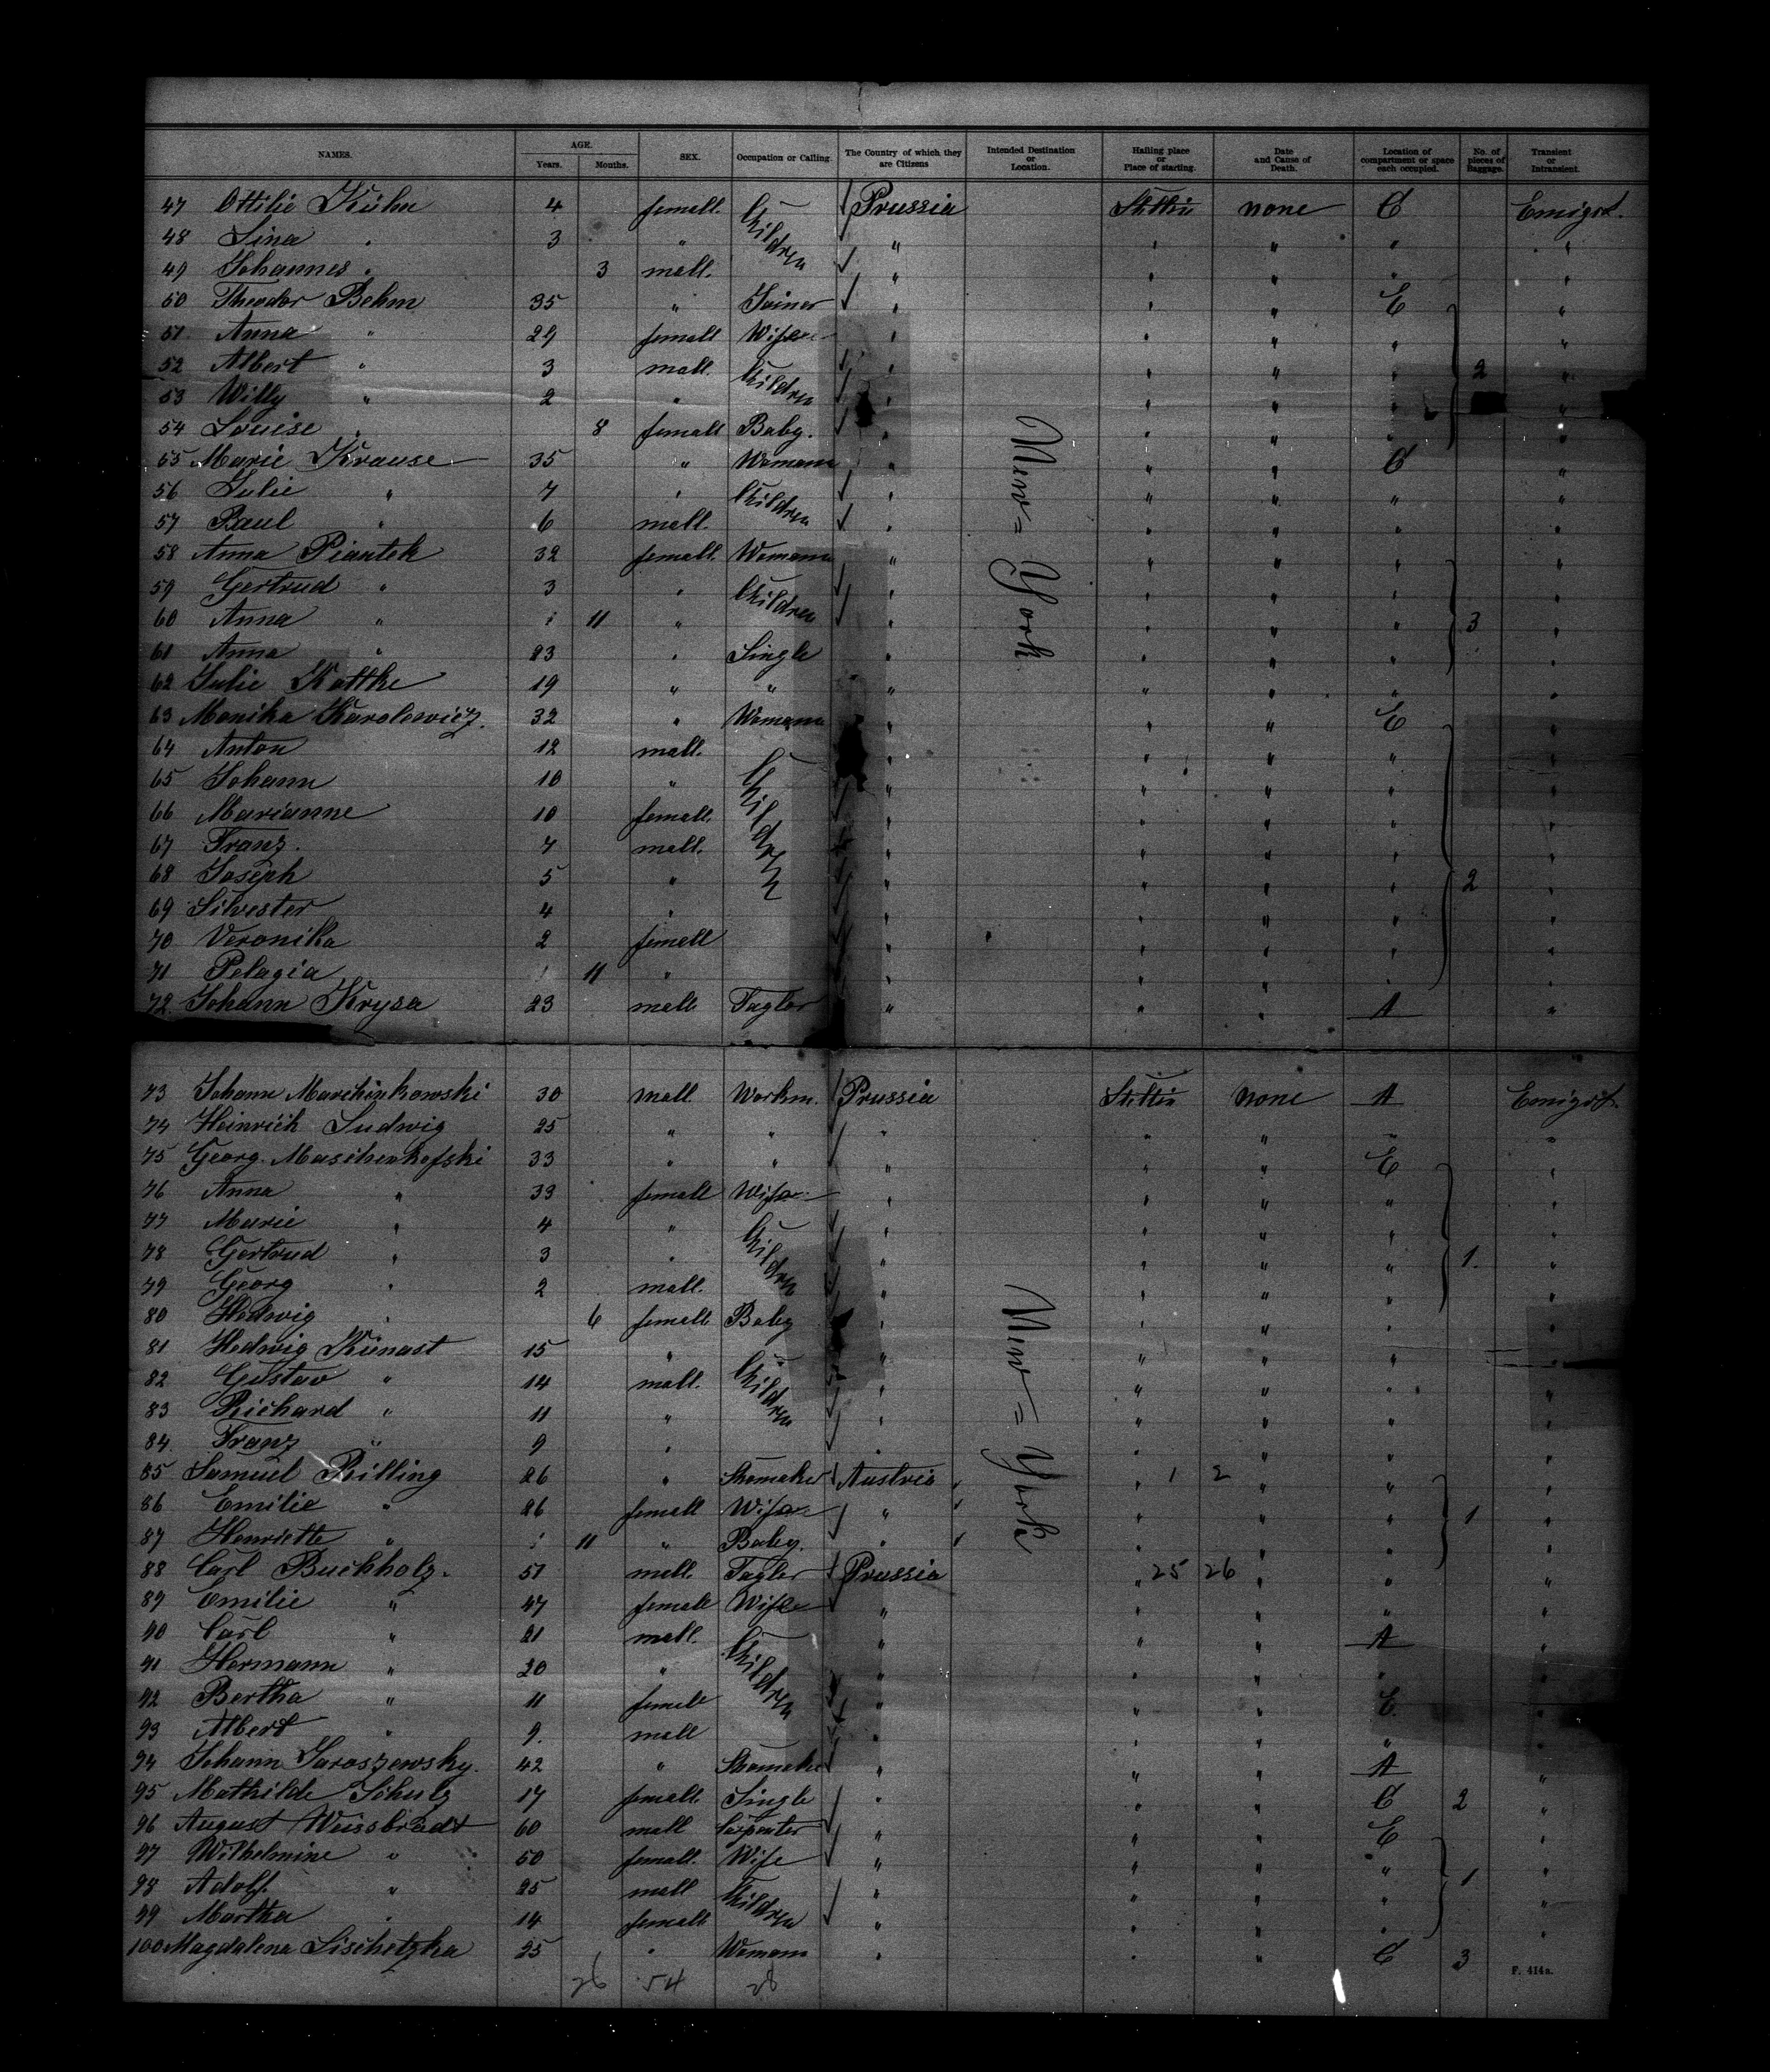 NAMES. AGE. SEX. Occupation or Calling. The Country of which they are Citizens Intended Destination or Location. Hailing place or Place of starting. Date and Cause of Death. Location of compartment or space each occupied. No. of pieces of Baggage. Transient or Intransient.
Years. Months.
47 Ottilie Kühn 4 femall. Children Prussia Stettin none C Emigrt.
48 Lina " 3 " " " " " "
49 Johannes " 3 mall. " " " " "
50 Theodor Behm 35 " Joiner " " " E "
51 Anna " 29 femall Wife " " " " "
52 Albert " 3 mall. Children " " " " 2 "
53 Willy " 2 " " " " " "
54 Louise " 8 femall Baby. " " " " "
55 Marie Krause 35 " Womann " " " C "
56 Julie " 7 " Children " " " " "
57 Paul " 6 mall. " " " " "
58 Anna Piantek 32 femall. Womann " " " " "
59 Gertrud " 3 " Children " " " " "
60 Anna " 11 " " " " " 3 "
61 Anna " 23 " Single " " " " "
62 Julie Kottke 19 " " " " " " "
63 Monika Karolewicz. 32 " Womann " " " E "
64 Anton 12 mall. Children " " " " "
65 Johann 10 " " " " " "
66 Marianne 10 femall. " " " " "
67 Franz. 7 mall. " " " " "
68 Joseph 5 " " " " " 2 "
69 Silvester 4 " " " " " "
70 Veronika 2 femall " " " " "
71 Pelagia 11 " " " " " "
72. Johann Krysa 23 mall Taglor " " " A "
New=York
73 Johann Marchinkowski 30 mall. Workm. Prussia Stettin none A Emigrt.
74 Heinrich Ludwig 25 " " " " " " "
75 Georg. Maschenkofski 33 " " " " " E "
76 Anna " 33 femall Wife " " " " "
77 Marie " 4 " Children " " " " "
78 Gertrud " 3 " " " " " 1. "
79 Georg " 2 mall. " " " " "
80 Hedwig " 6 femall Baby " " " " "
81 Hedwig Künast 15 " Children " " " " "
82 Gustav " 14 mall. " " " " "
83 Richard " 11 " " " " " "
84. Franz " 9 " " " " " "
85 Samuel Rilling 26 " Shomaker Austria " 1 2 " " "
86 Emilie " 26 femall Wife " " " " 1 "
87 Henriette " 11 " Baby. " " " " "
88 Carl Buchholz. 51 mall. Tagler Prussia " 25 26 " " "
89 Emilie " 47 femall Wife " " " " "
90 Carl " 21 mall. Children " " " A "
91 Hermann " 20 " " " " " "
92 Bertha " 11 femall " " " E. "
93 Albert " 9. mall " " " " "
94 Johann Jaroszewsky. 42 " Shomaker " " " A "
95 Mathilde Schulz 17 femall. Single " " " C 2 "
96 August Weissbrodt 60 mall Carpenter " " " E "
97 Wilhelmine " 50 femall. Wife " " " " "
98 Adolf. " 25 mall Children " " " " 1 "
99 Martha " 14 femall " " " " "
100 Magdalena Lischetzka 25 " Womann " " " C 3
New=York
26 54 28
F. 414a.